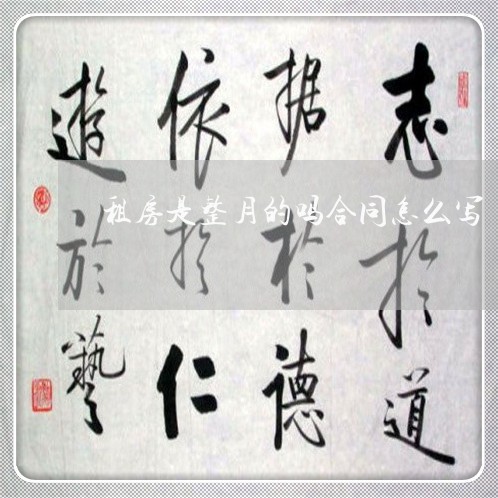 志於道
据於德
依於仁
遊於藝
租房是整月的吗合同怎么写